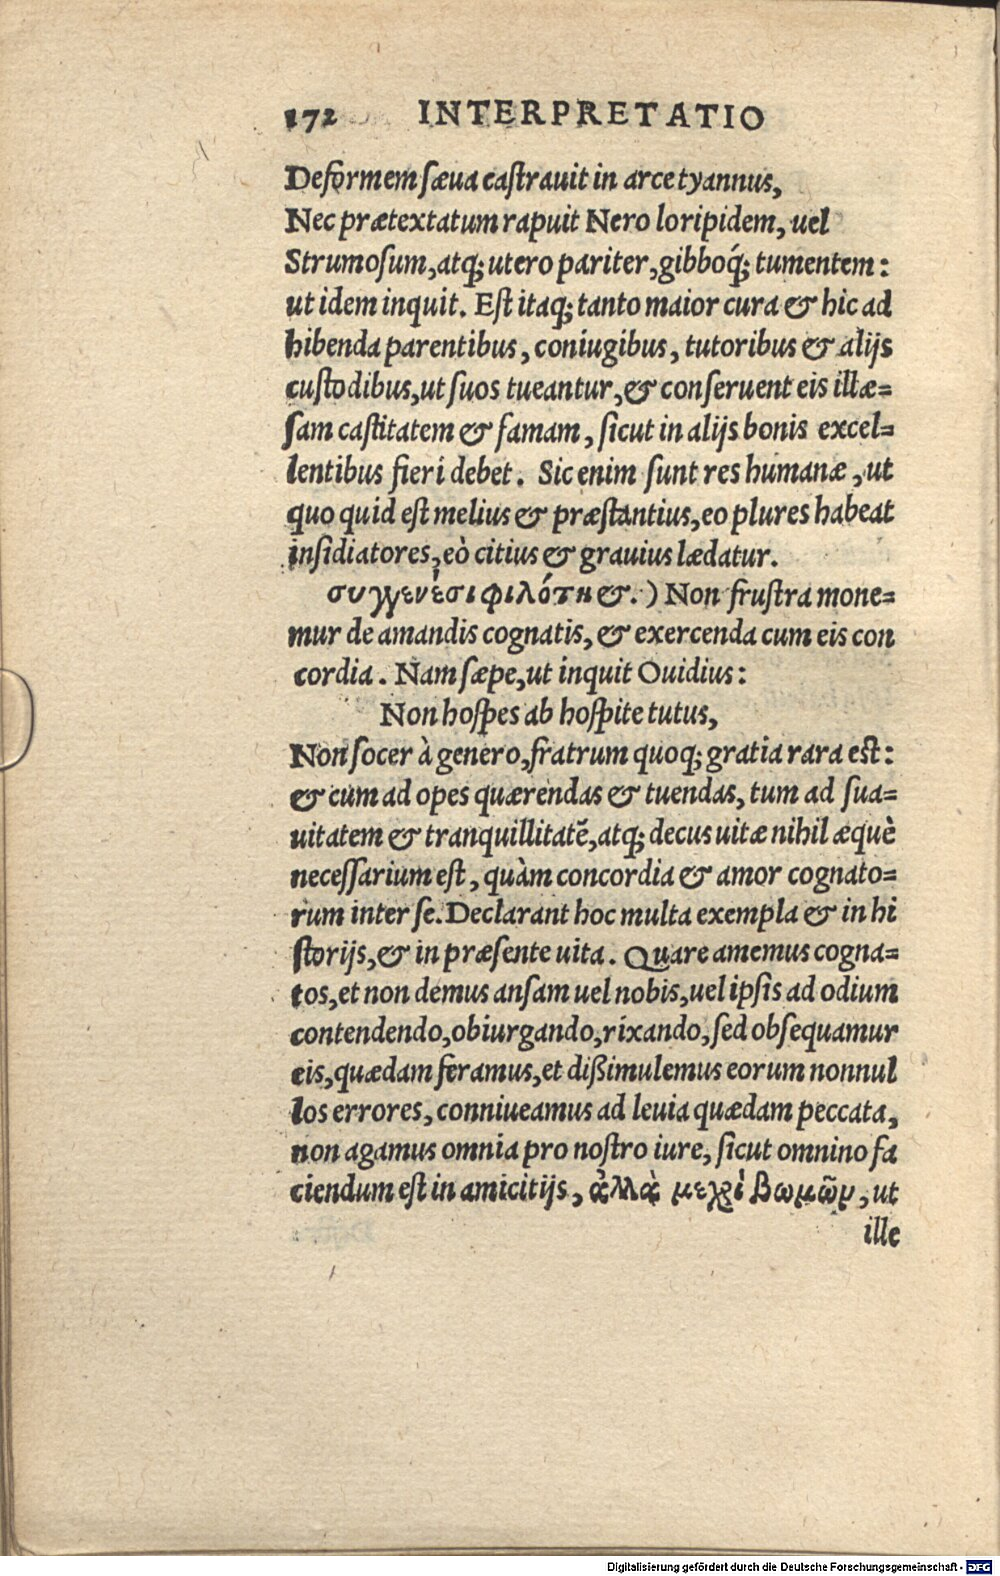 172 INTERPRETATIO
Deformem sæua castrauit in arce tyannus,
Nec prætextatum rapuit Nero loripidem, uel
Strumosum, atq; utero pariter, gibboq́; tumentem:
ut idem inquit. Est itaq; tanto maior cura & hic ad
hibenda parentibus, coniugibus, tutoribus & alijs
custodibus, ut suos tueantur, & conseruent eis illæ=
sam castitatem & famam, sicut in alijs bonis excel=
lentibus fieri debet. Sic enim sunt res humanæ, ut
quo quid est melius & præstantius, eo plures habeat
insidiatores, eò citius & grauius lædatur.
συγγενέσι φιλότη &.) Non frustra mone=
mur de amandis cognatis, & exercenda cum eis con
cordia. Nam sæpe, ut inquit Ouidius:
Non hospes ab hospite tutus,
Non socer à genero, fratrum quoq; gratia rara est:
& cum ad opes quærendas & tuendas, tum ad sua=
uitatem & tranquillitatē, atq; decus uitæ nihil æquè
necessarium est, quàm concordia & amor cognato=
rum inter se. Declarant hoc multa exempla & in hi
storijs, & in præsente uita. Quare amemus cogna=
tos, et non demus ansam uel nobis, uel ipsis ad odium
contendendo, obiurgando, rixando, sed obsequamur
eis, quædam feramus, et dißimulemus eorum nonnul
los errores, conniueamus ad leuia quædam peccata,
non agamus omnia pro nostro iure, sicut omnino fa
ciendum est in amicitijs, ἀλλὰ μεχρὶ βωμῶν, ut
ille
Digitalisierung gefördert durch die Deutsche Forschungsgemeinschaft - DFG